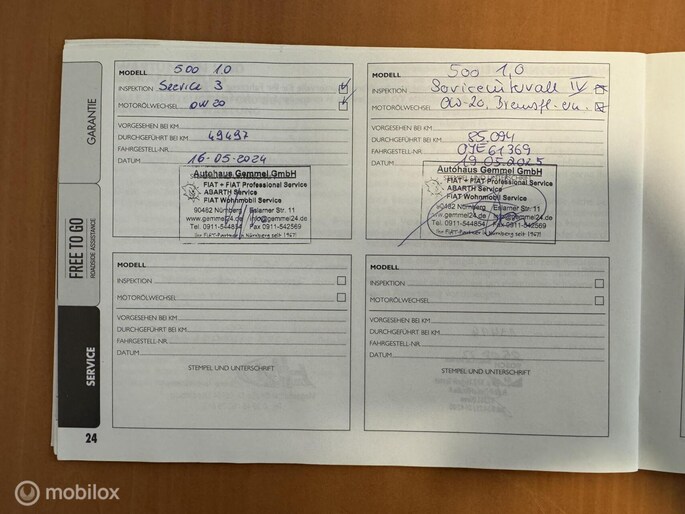 GARANTIE
FREE TO GO
ROADSIDE ASSISTANCE
SERVICE
24
MODELL 500 1.0
INSPEKTION Service 3
MOTORÖLWECHSEL 0W20
VORGESEHEN BEI KM
DURCHGEFÜHRT BEI KM 49497
FAHRGESTELL-NR.
DATUM 16-05-2024
Autohaus Gemmel GmbH
FIAT + FIAT Professional Service
ABARTH Service
FIAT Wohnmobil Service
90482 Nürnberg Eslarner Str. 11
www.gemmel24.de / info@gemmel24.de
Tel. 0911-544854 Fax 0911-542569
Ihr FIAT-Partner in Nürnberg seit 1967!
MODELL 500 1,0
INSPEKTION Serviceintervall IV
MOTORÖLWECHSEL 0W-20, Bremsfl.-ern.
VORGESEHEN BEI KM
DURCHGEFÜHRT BEI KM 85.094
FAHRGESTELL-NR. 07E61369
DATUM 19.05.2025
Autohaus Gemmel GmbH
FIAT + FIAT Professional Service
ABARTH Service
FIAT Wohnmobil Service
90482 Nürnberg Eslarner Str. 11
www.gemmel24.de / info@gemmel24.de
Tel. 0911-544854 Fax 0911-542569
Ihr FIAT-Partner in Nürnberg seit 1967!
MODELL
INSPEKTION
MOTORÖLWECHSEL
VORGESEHEN BEI KM
DURCHGEFÜHRT BEI KM
FAHRGESTELL-NR.
DATUM
STEMPEL UND UNTERSCHRIFT
MODELL
INSPEKTION
MOTORÖLWECHSEL
VORGESEHEN BEI KM
DURCHGEFÜHRT BEI KM
FAHRGESTELL-NR.
DATUM
STEMPEL UND UNTERSCHRIFT
mobilox